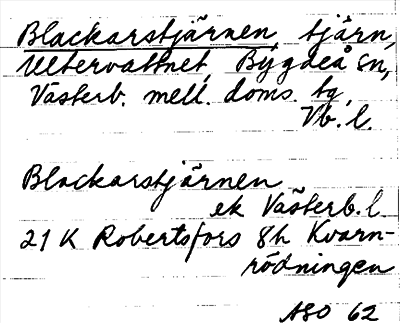 Blackarstjärnen, tjärn,
Ultervattnet, Bygdeå sn,
Västerb. mell. doms. tg,
Vb. l.
Blackarstjärnen
ek Västerb. l
21 K Robertsfors 8h Kvarn-
rödningen
ASO 62